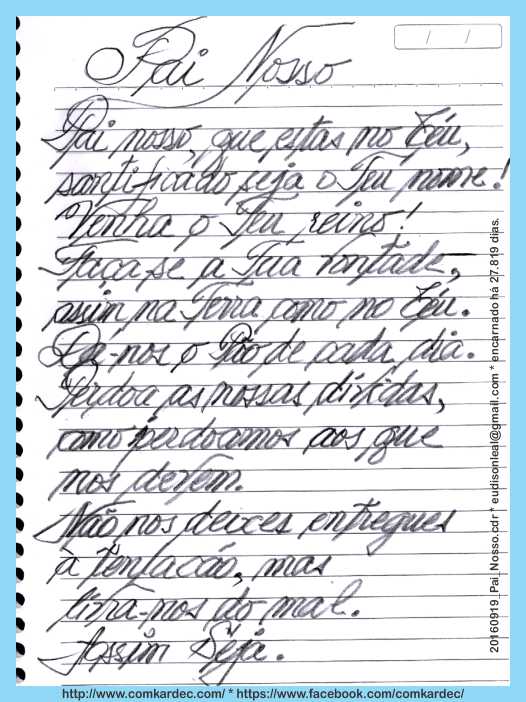 Pai Nosso
/ /
Pai nosso, que estas no Céu,
santificado seja o Teu nome!
Venha o Teu reino!
Faça-se a Tua vontade,
assim na Terra como no Céu.
Dá-nos o Pão de cada dia.
Perdoa as nossas dívidas,
como perdoamos aos que
nos devem.
Não nos deixes entregues
à tentacão, mas
livra-nos do mal.
Assim Seja.
20160919_Pai_Nosso.cdr * eudisonleal@gmail.com * encarnado há 27.819 dias.
http://www.comkardec.com/ * https://www.facebook.com/comkardec/